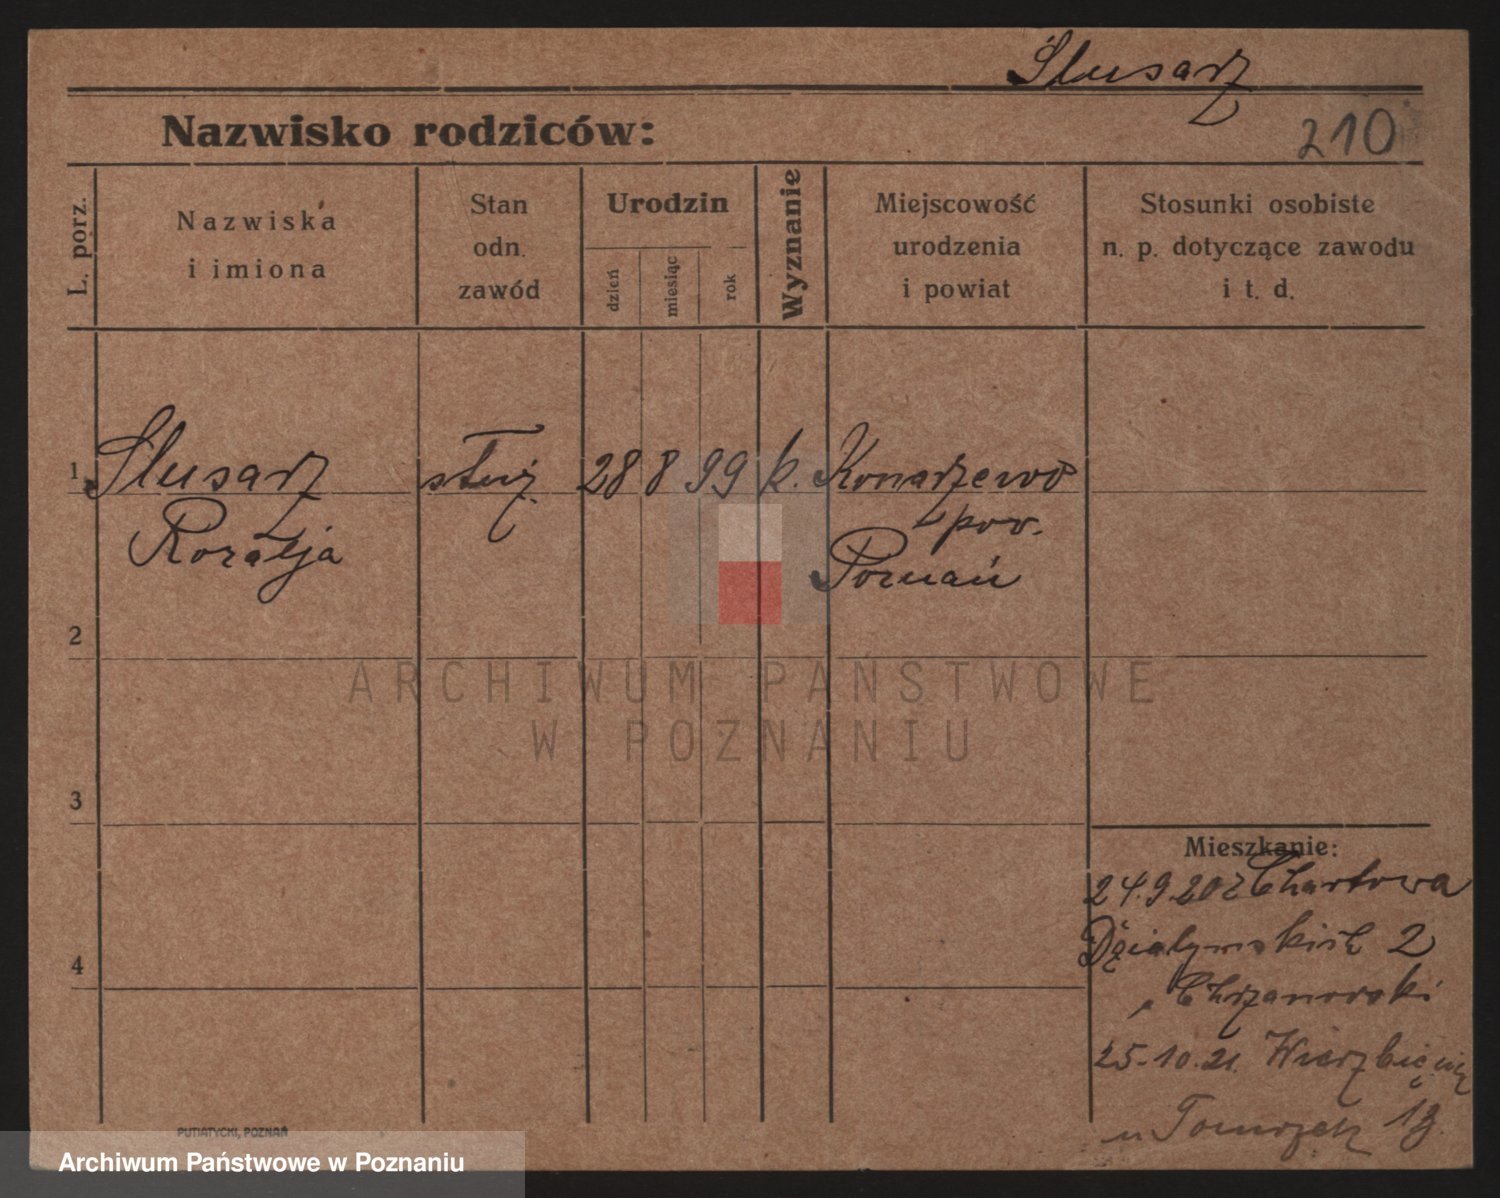 Ślusarz
Nazwisko rodziców:
210
L. porz.
Nazwiska
i imiona
Stan
odn.
zawód
Urodzin
dzień
miesiąc
rok
Wyznanie
Miejscowość
urodzenia
i powiat
Stosunki osobiste
n. p. dotyczące zawodu
i t. d.
1 Ślusarz służ 28 8 99 k. Konarzewo
Rozalja pow.
Poznań
2
3
4
Mieszkanie:
24.9.20 z Chartowa
Działyńskich 2
Chrzanowski
25.10.21. Wierzbięcic
u Tomczak 13.
PUTIATYCKI, POZNAŃ
ARCHIWUM PAŃSTWOWE
W POZNANIU
Archiwum Państwowe w Poznaniu